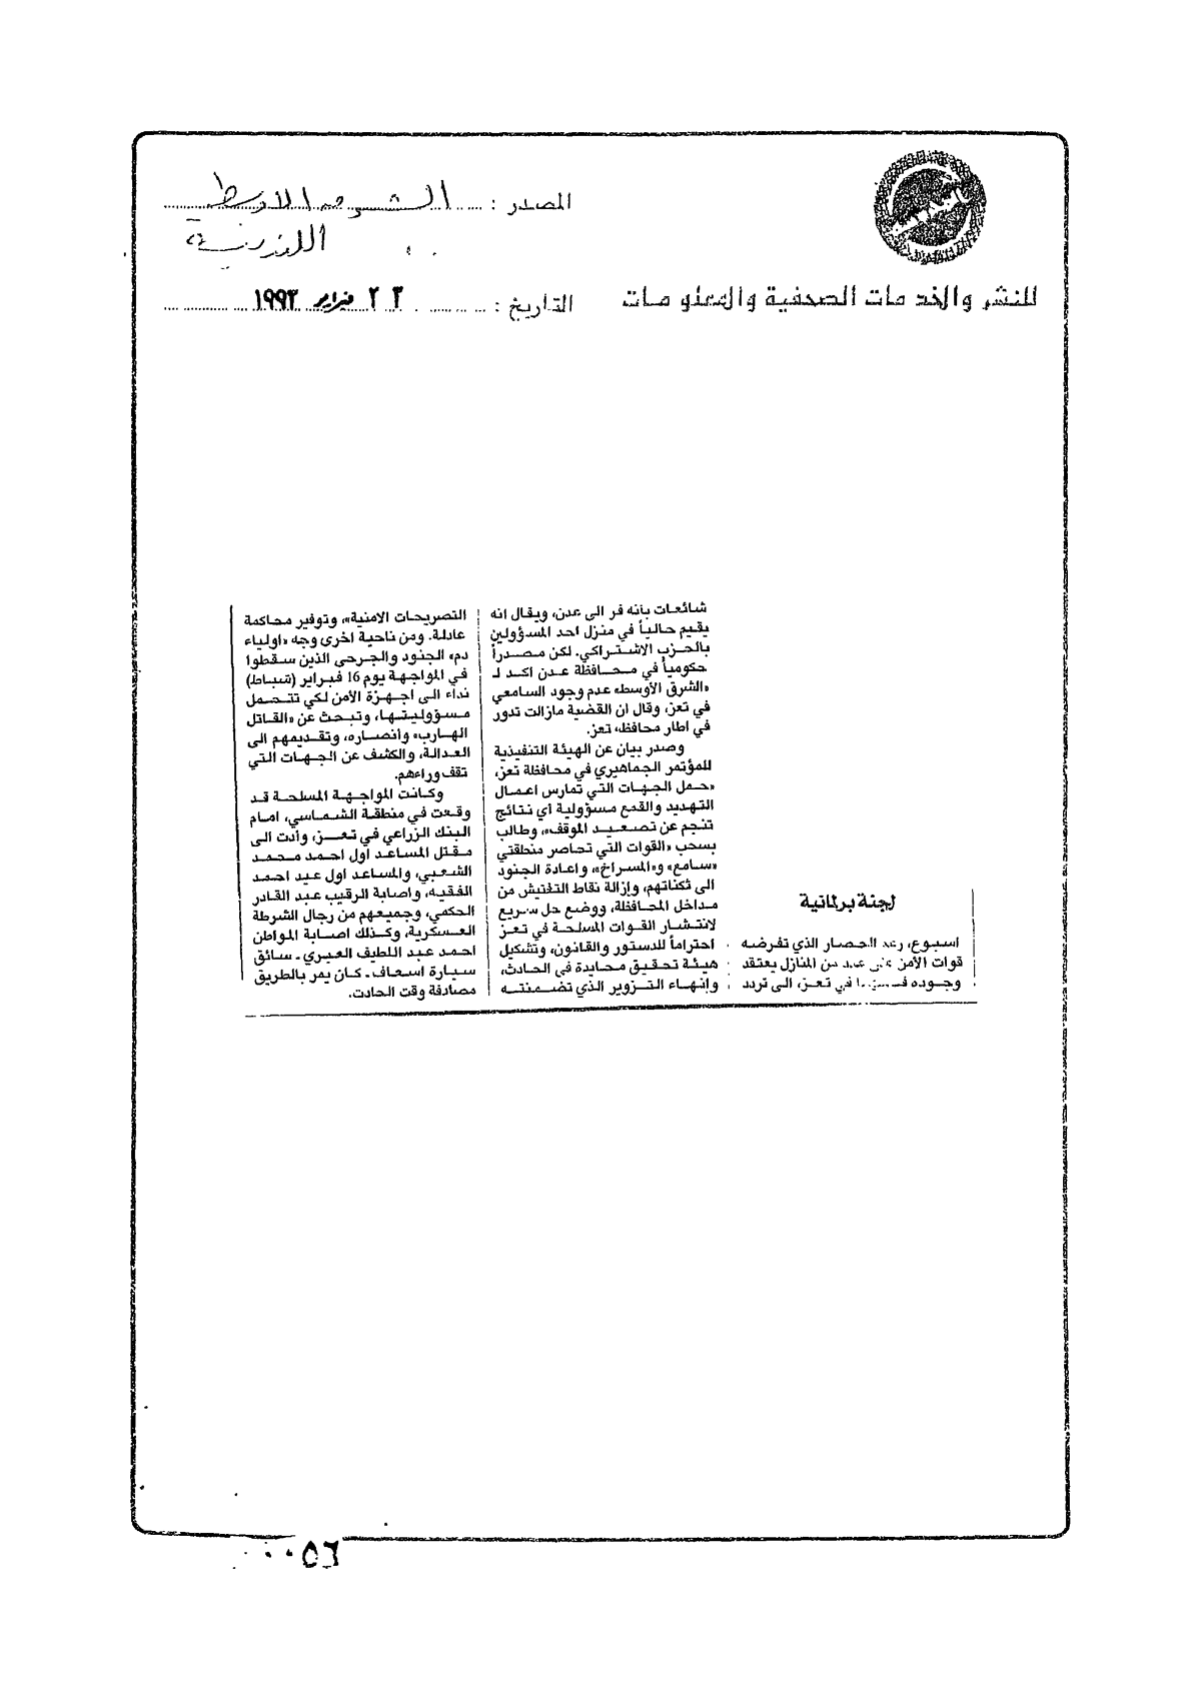 المصدر : الشرق الاوسط
اللندنية
للنشر والخدمات الصحفية والمعلومات
التاريخ : ٢٢ فبراير ١٩٩٣
لجنة برلمانية
اسبوع، رغم الحصار الذي تفرضه
قوات الأمن على عدد من المنازل يعتقد
وجوده في تعز، الى تردد
شائعات بانه فر الى عدن، ويقال انه
يقيم حالياً في منزل احد المسؤولين
بالحزب الاشتراكي. لكن مصدراً
حكومياً في محافظة عدن اكد لـ
«الشرق الأوسط» عدم وجود السامعي
في تعز، وقال ان القضية مازالت تدور
في اطار محافظة تعز.
وصدر بيان عن الهيئة التنفيذية
للمؤتمر الجماهيري في محافظة تعز،
«حمل الجهات التي تمارس اعمال
التهديد والقمع مسؤولية اي نتائج
تنجم عن تصعيد الموقف»، وطالب
بسحب «القوات التي تحاصر منطقتي
«سامع» و«المسراخ»، واعادة الجنود
الى ثكناتهم، وإزالة نقاط التفتيش من
مداخل المحافظة، ووضع حل سريع
لانتشار القوات المسلحة في تعز
احتراماً للدستور والقانون، وتشكيل
هيئة تحقيق محايدة في الحادث،
وإنهاء التزوير الذي تضمنته
التصريحات الامنية»، وتوفير محاكمة
عادلة. ومن ناحية اخرى وجه «اولياء
دم» الجنود والجرحى الذين سقطوا
في المواجهة يوم 16 فبراير (شباط)
نداء الى اجهزة الأمن لكي تتحمل
مسؤوليتها، وتبحث عن «القاتل
الهارب» وانصاره، وتقديمهم الى
العدالة، والكشف عن الجهات التي
تقف وراءهم.
وكانت المواجهة المسلحة قد
وقعت في منطقة الشماسي، امام
البنك الزراعي في تعز، وأدت الى
مقتل المساعد اول احمد محمد
الشعبي، والمساعد اول عبد احمد
الفقيه، واصابة الرقيب عبد القادر
الحكمي، وجميعهم من رجال الشرطة
العسكرية، وكذلك اصابة المواطن
احمد عبد اللطيف العبري ـ سائق
سيارة اسعاف ـ كان يمر بالطريق
مصادفة وقت الحادث.
٠٠٥٦